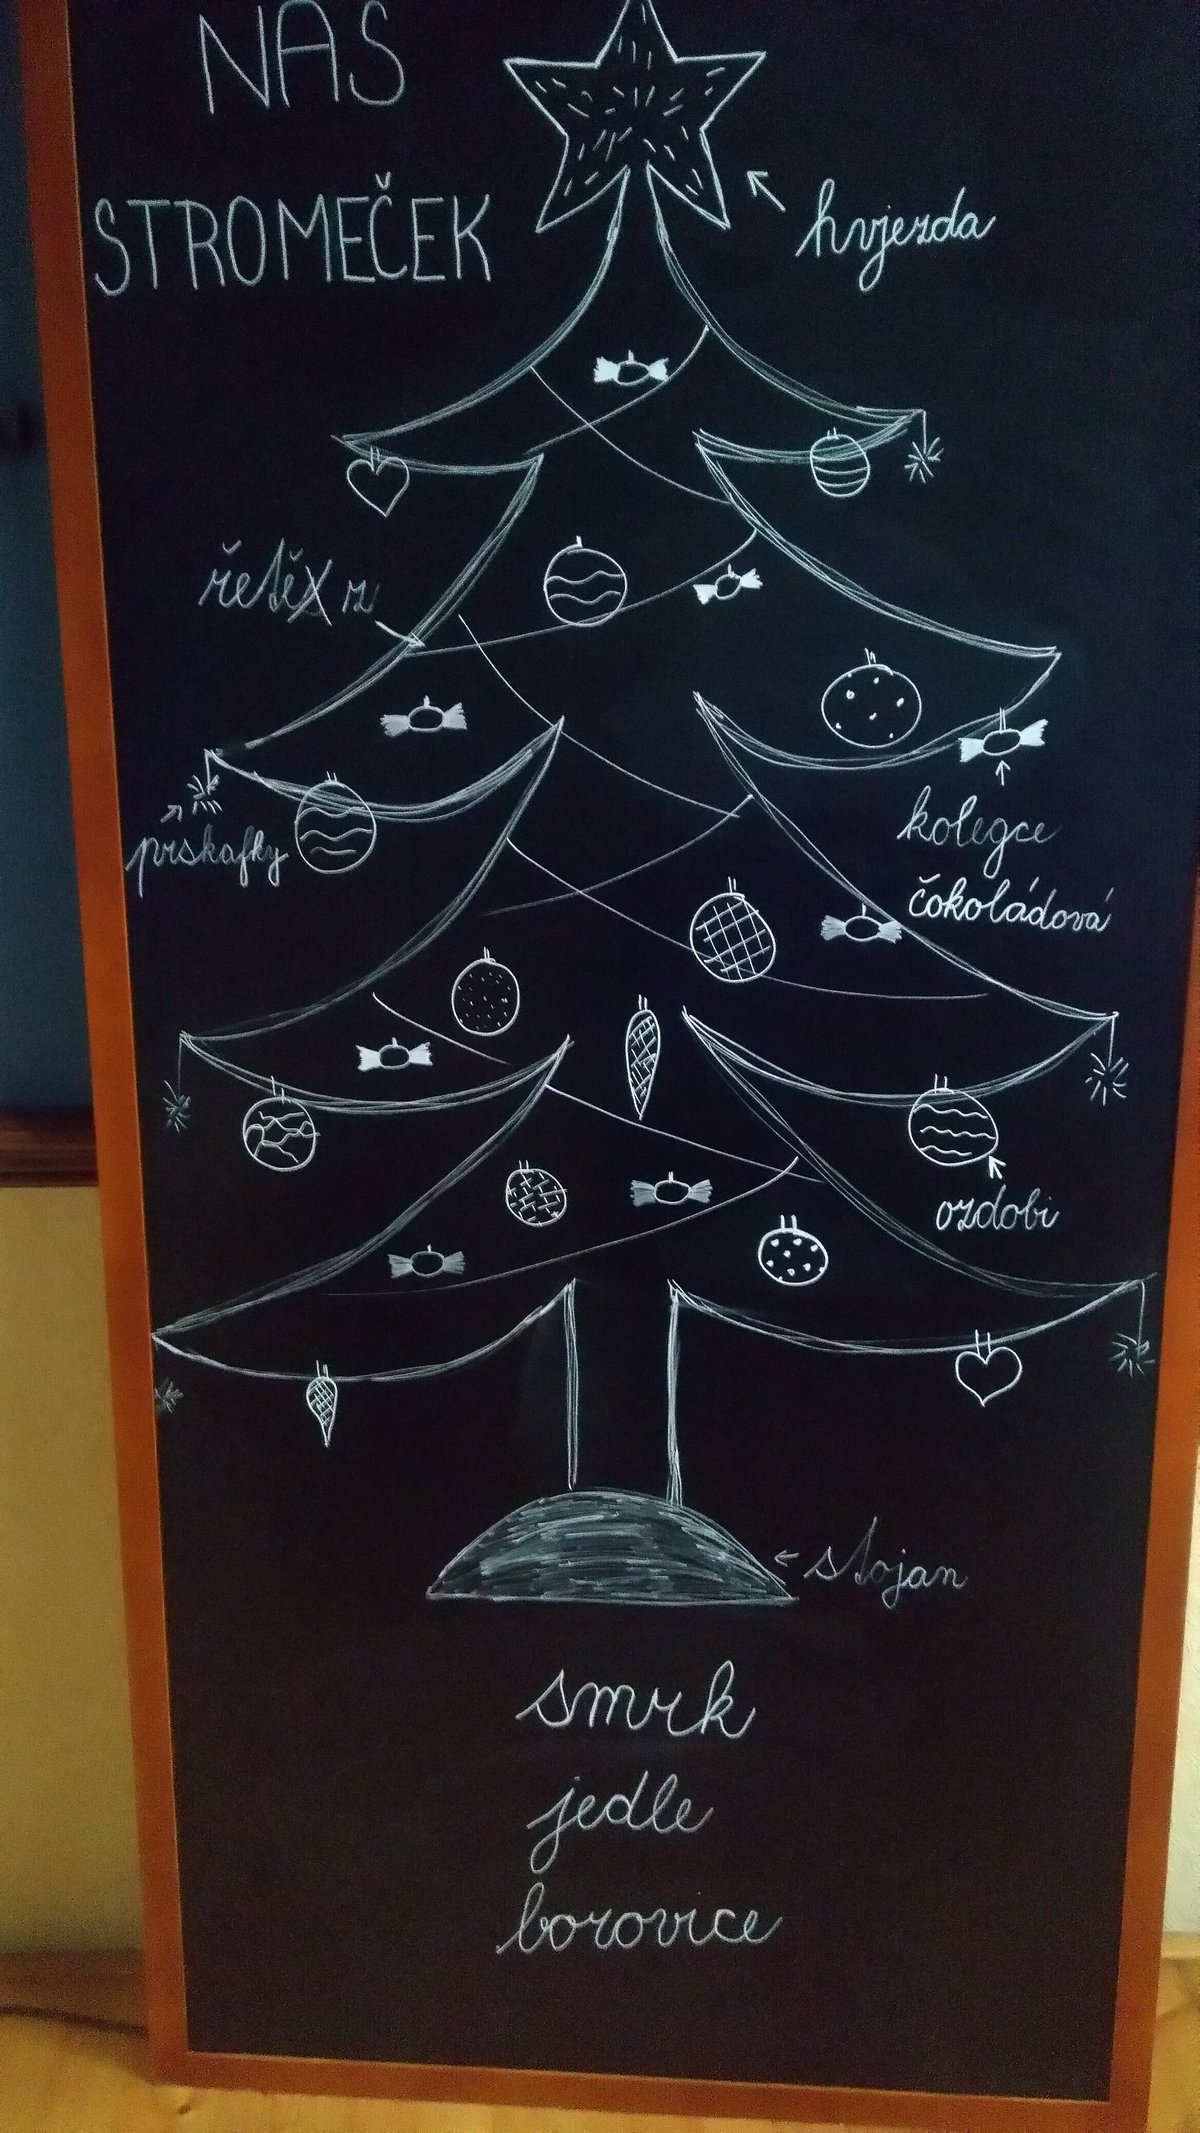 NÁŠ
STROMEČEK
hvjezda
řetěx z
prskafky
kolegce
čokoládová
ozdobi
stojan
smrk
jedle
borovice